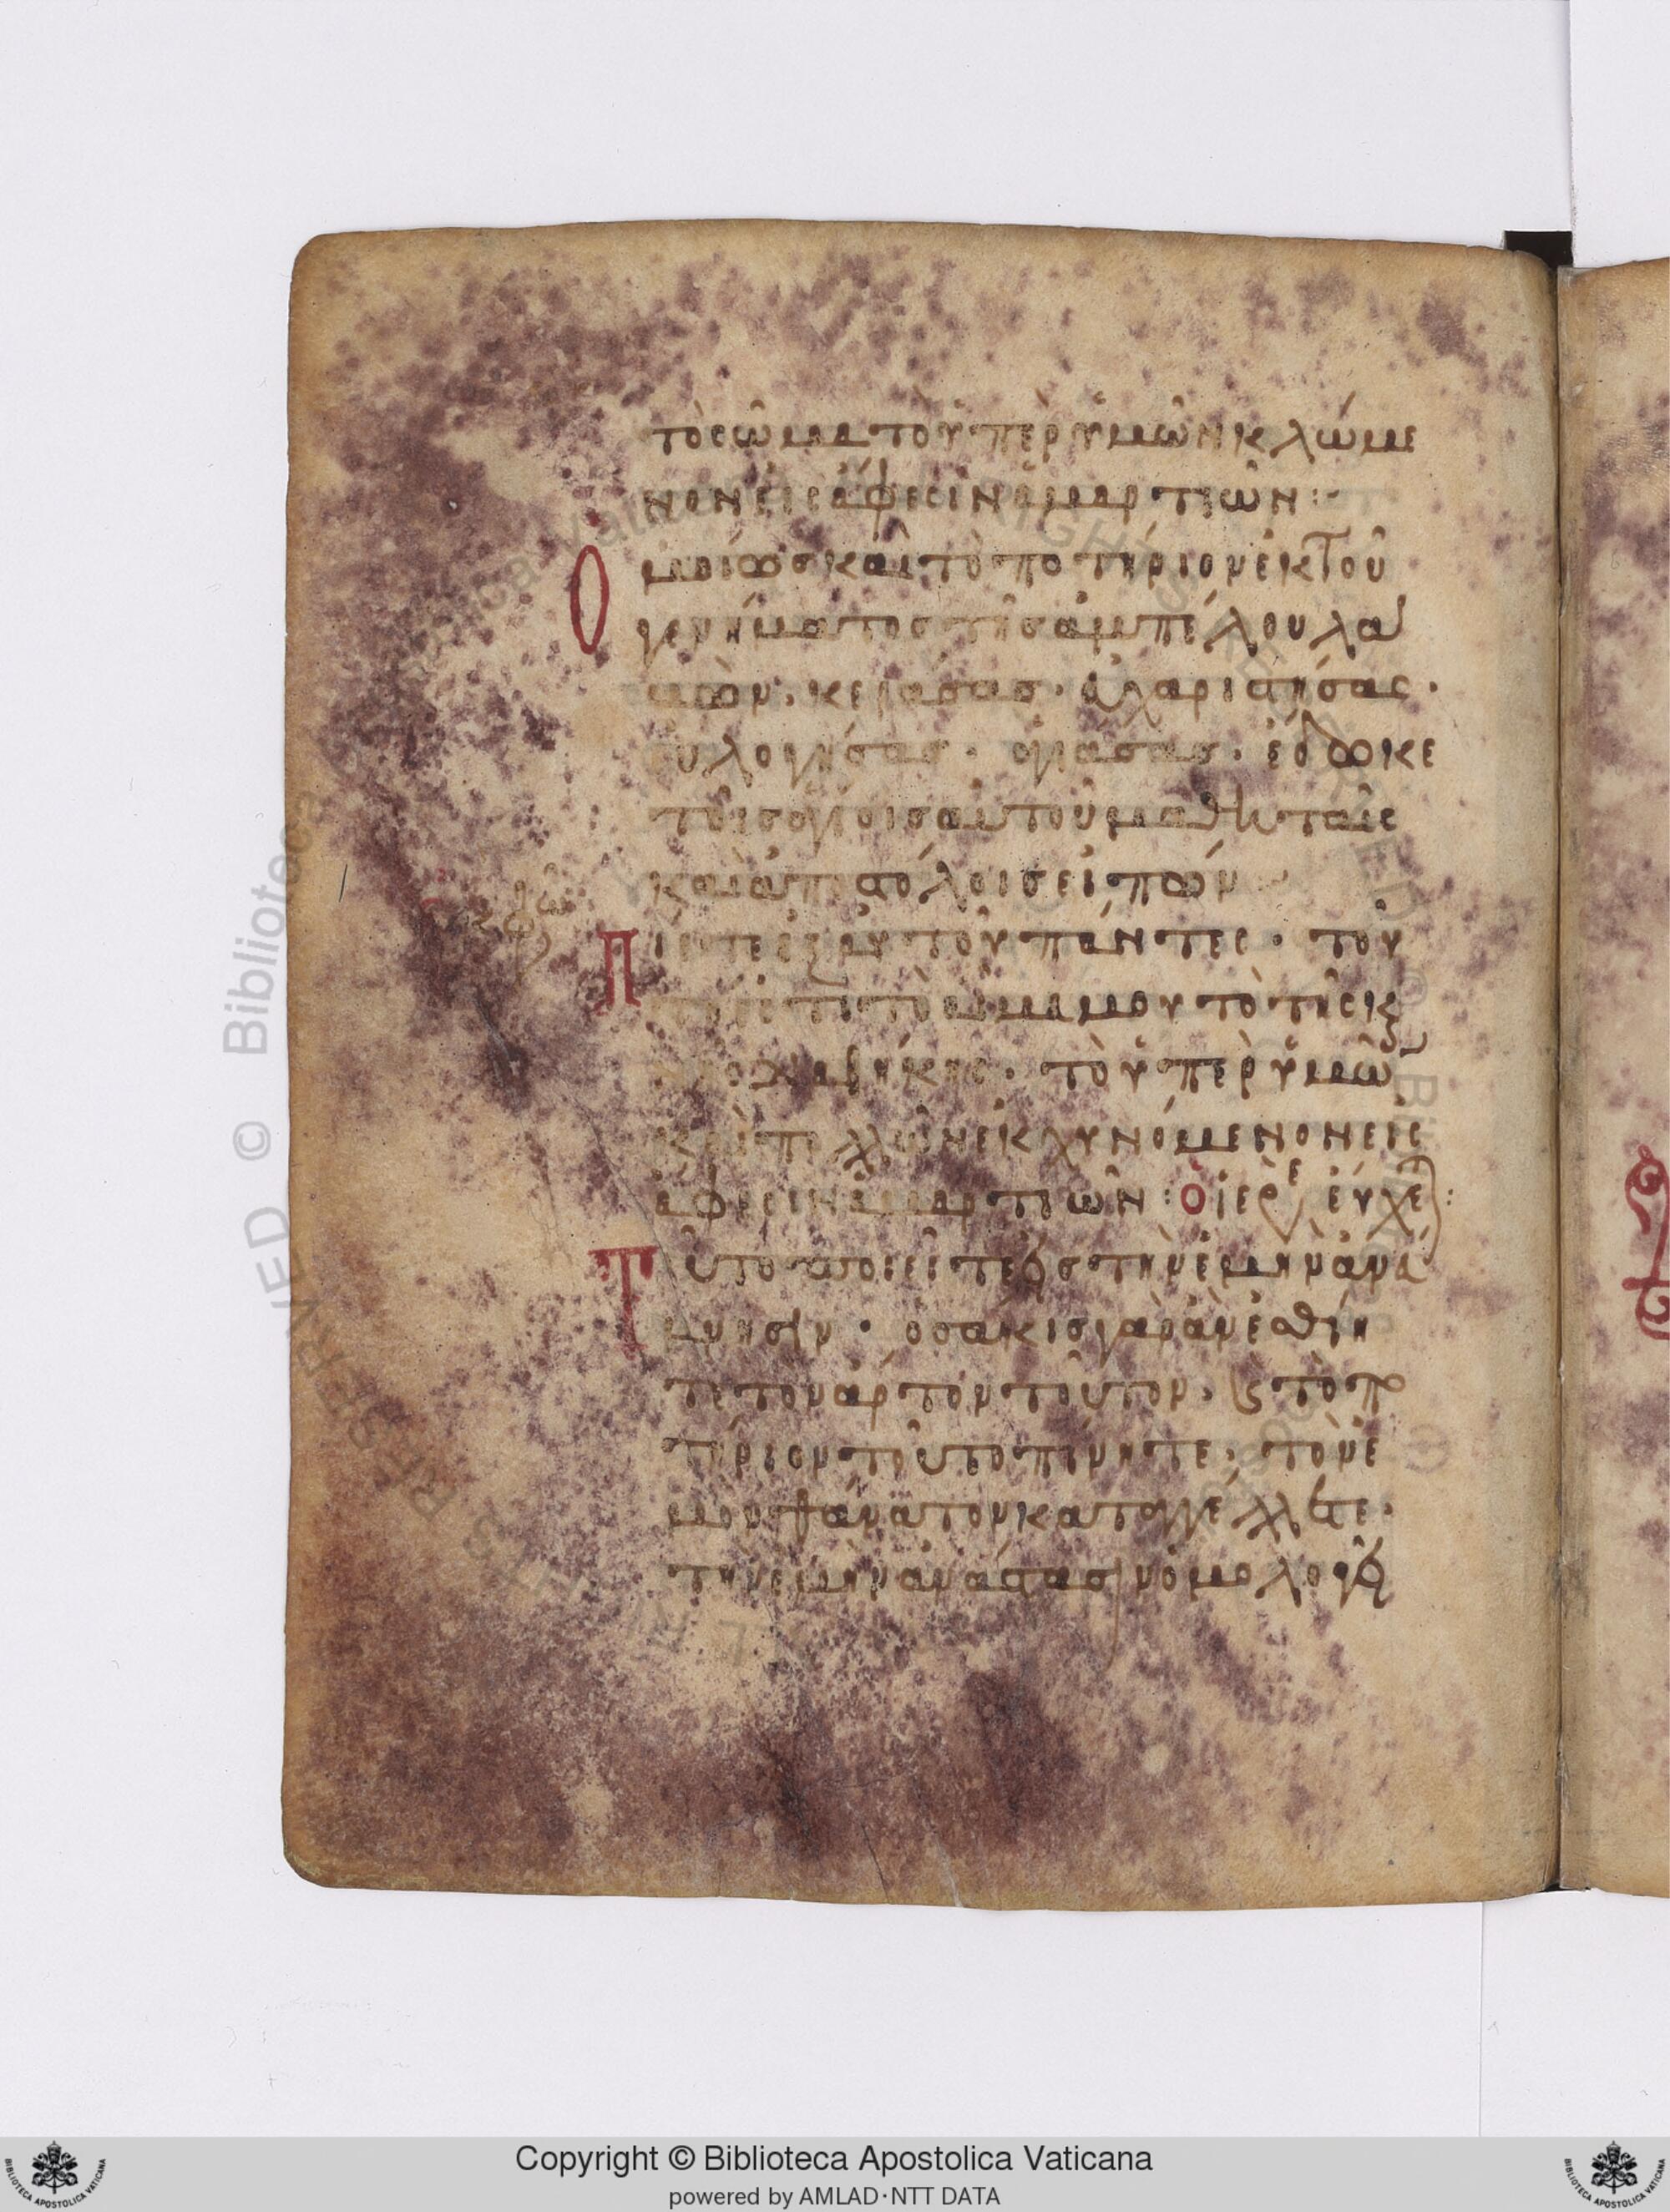 τὸ σῶμα τὸ ὑπὲρ ὑμῶν κλώμε
νον εἰς ἄφεσιν ἁμαρτιῶν :
Ὁμοίως καὶ τὸ ποτήριον ἐκ τοῦ
γενήματος τῆς ἀμπέλου λα
βὼν · κεράσας · εὐχαριστήσας ·
εὐλογήσας · ἁγιάσας · ἔδωκε
τοῖς ἁγίοις αὐτοῦ μαθηταῖς
καὶ ἀποστόλοις εἰπών
Πίετε ἐξ αὐτοῦ πάντες · τοῦ
τό ἐστι τὸ αἷμα μου τὸ τῆς κ
διαθήκης · τὸ ὑπὲρ ὑμῶν
καὶ πολλῶν ἐκχυνόμενον εἰς
ἄφεσιν ἁμαρτιῶν : ὁ ἱερε εὔχε :
Τοῦτο ποιεῖτε εἰς τὴν ἐμὴν ἀνά
μνησιν · ὁσάκις γὰρ ἂν ἐσθίη
τε τὸν ἄρτον τοῦτον · κ τὸ πο
τήριον τοῦτο πίνητε · τὸν ἐ
μὸν θάνατον καταγγέλλετε ·
τὴν ἐμὴν ἀνάστασιν ὁμολογεῖ
Copyright © Biblioteca Apostolica Vaticana
powered by AMLAD·NTT DATA